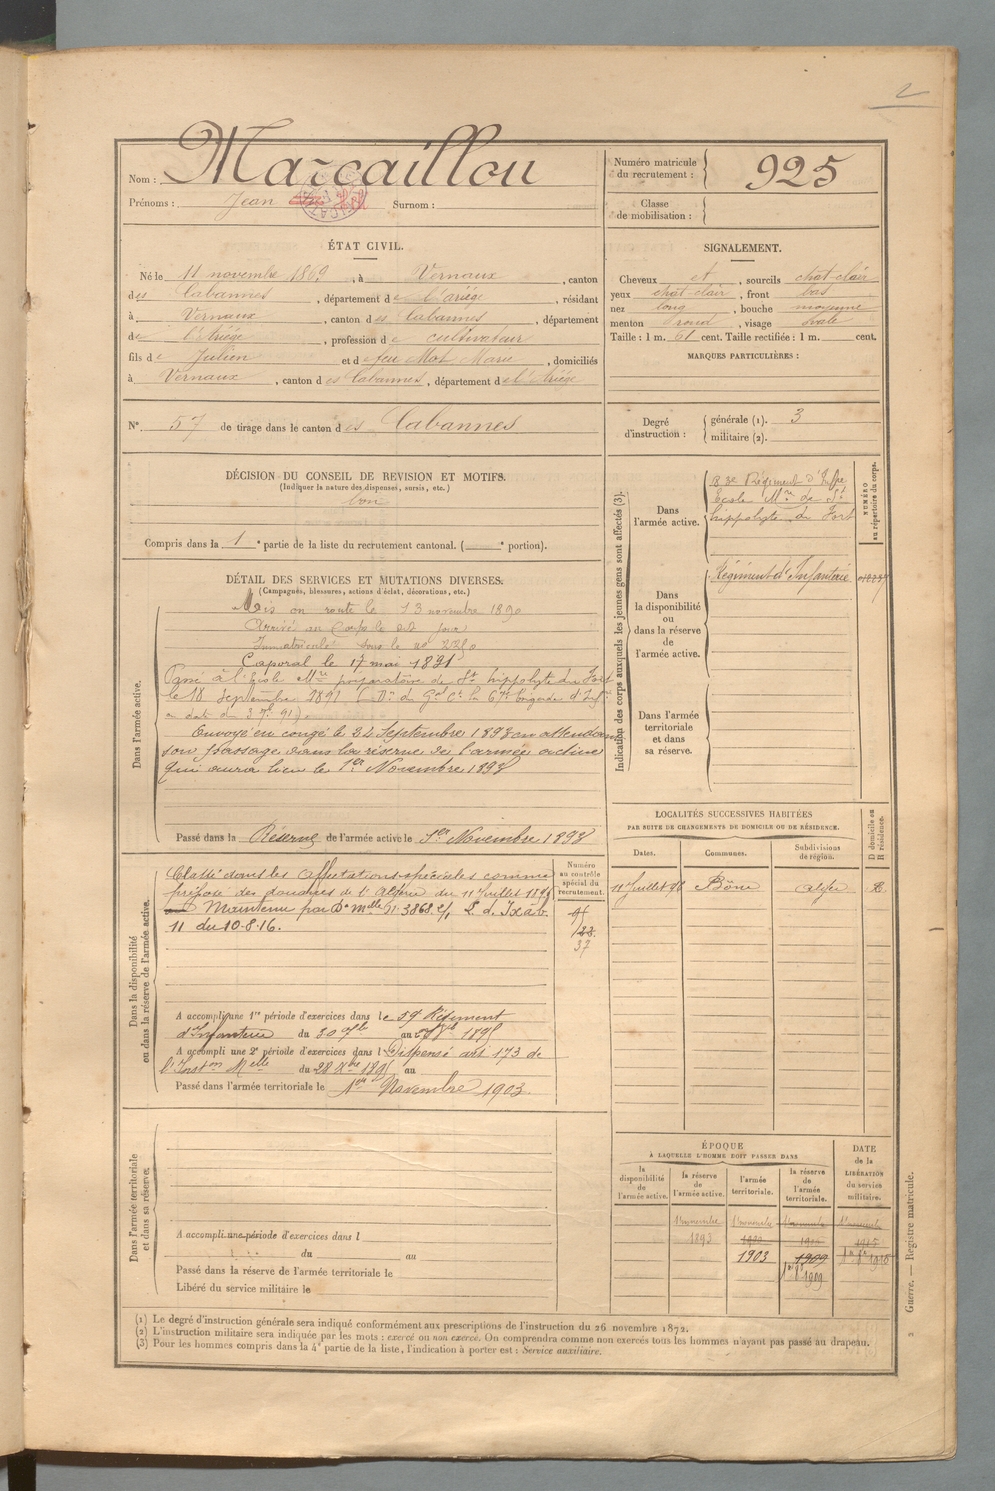 2
Nom : Marcaillou
Prénoms : Jean Surnom :
Numéro matricule du recrutement : 925
Classe de mobilisation :
ÉTAT CIVIL.
Né le 11 novembre 1869, à Vernaux, canton
des Cabannes, département de l'ariège, résidant
à Vernaux, canton des Cabannes, département
de l'Ariège, profession de cultivateur
fils de Julien et de feu Mot Marie, domiciliés
à Vernaux, canton des Cabannes, département de l'Ariège
SIGNALEMENT.
Cheveux et, sourcils chat-clair
yeux chat-clair, front bas
nez long, bouche moyenne
menton rond, visage ovale
Taille : 1 m. 61 cent. Taille rectifiée : 1 m. cent.
MARQUES PARTICULIÈRES :
N° 57 de tirage dans le canton des Cabannes
Degré d'instruction : générale (1). 3
militaire (2).
DÉCISION DU CONSEIL DE REVISION ET MOTIFS.
(Indiquer la nature des dispenses, sursis, etc.)
bon
Compris dans la 1e partie de la liste du recrutement cantonal. ( e portion).
DÉTAIL DES SERVICES ET MUTATIONS DIVERSES.
(Campagnes, blessures, actions d'éclat, décorations, etc.)
Dans l'armée active.
Mis en route le 13 novembre 1890
Arrivé au Corps le dit jour
Immatriculé sous le no 2250
Caporal le 17 mai 1891
Passé à l'Ecole Mre préparatoire de St hippolyte du Fort
le 18 Septembre 1891 (Don du Gal Ct la 67e Brigade d'Infie
en date du 3 7bre 91)
Envoyé en congé le 24 Septembre 1893 en attendant
son passage dans la réserve de l'armée active
qui aura lieu le 1er Novembre 1893
Passé dans la Réserve de l'armée active le 1er Novembre 1893
Indication des corps auxquels les jeunes gens sont affectés (3).
NUMÉRO au répertoire du corps.
Dans l'armée active.
Régiment d'Infie
Ecole Mre de St
hippolyte du Fort
Dans la disponibilité ou dans la réserve de l'armée active.
Régiment d'Infanterie
Dans l'armée territoriale et dans sa réserve.
Dans la disponibilité ou dans la réserve de l'armée active.
Numéro au contrôle spécial du recrutement.
Classé dans les affectations spéciales comme
préposé des douanes de l'algérie du 11 Juillet
Maintenu par Dn mlle 3868
11 du 10-8-16.
A accompli une 1re période d'exercices dans le 59 Régiment
d'Infanterie du 30 au
A accompli une 2e période d'exercices dans l Dispensé art 173 de
l'Inston Melle du 28 Xbre au
Passé dans l'armée territoriale le 1er Novembre 1903.
LOCALITÉS SUCCESSIVES HABITÉES
PAR SUITE DE CHANGEMENTS DE DOMICILE OU DE RÉSIDENCE.
Dates. Communes. Subdivisions de région. D domicile ou R résidence.
11 Juillet 96 Bône alger R.
Dans l'armée territoriale et dans sa réserve.
A accompli une période d'exercices dans l
du au
Passé dans la réserve de l'armée territoriale le
Libéré du service militaire le
ÉPOQUE
À LAQUELLE L'HOMME DOIT PASSER DANS
la disponibilité de l'armée active. la réserve de l'armée active. l'armée territoriale. la réserve de l'armée territoriale. DATE de la LIBÉRATION du service militaire.
1er novembre 1er novembre 1er novembre 1er novembre
1893
1903 1909
1909
(1) Le degré d'instruction générale sera indiqué conformément aux prescriptions de l'instruction du 26 novembre 1872.
(2) L'instruction militaire sera indiquée par les mots : exercé ou non exercé. On comprendra comme non exercés tous les hommes n'ayant pas passé au drapeau.
(3) Pour les hommes compris dans la 4e partie de la liste, l'indication à porter est : Service auxiliaire.
Guerre. — Registre matricule.